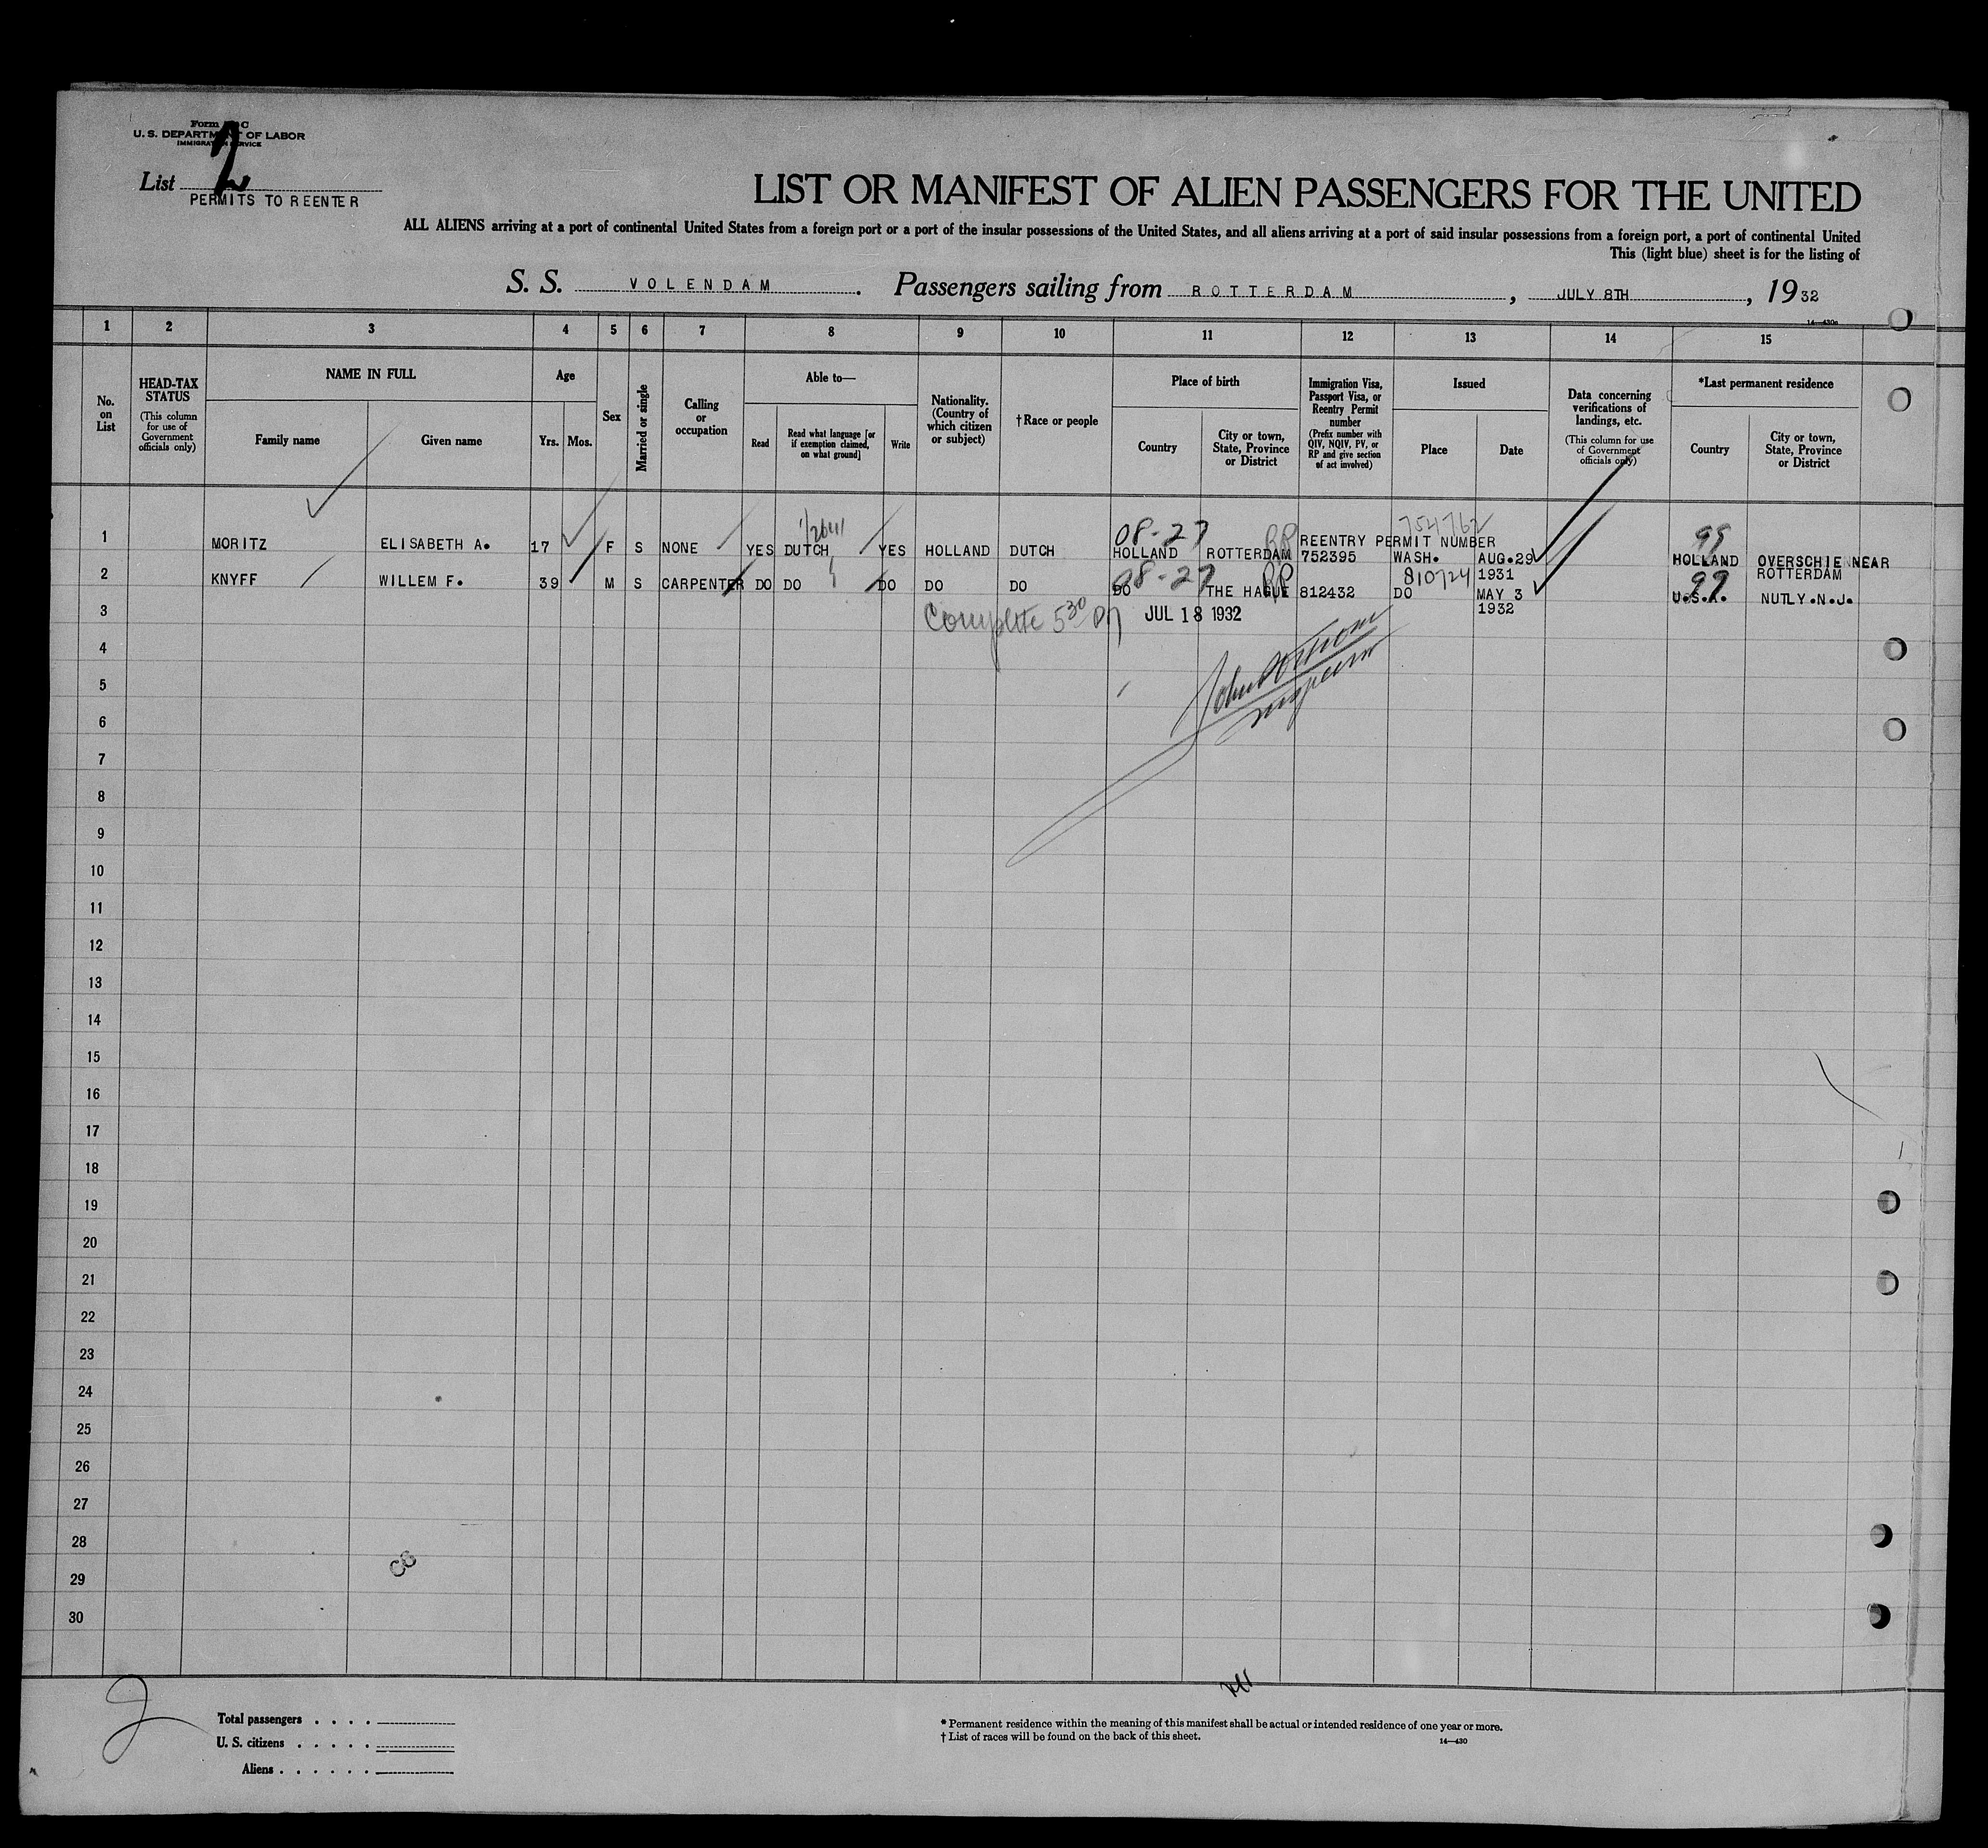 U. S. DEPARTMENT OF LABOR
IMMIGRATION SERVICE
List 2
PERMITS TO REENTER
LIST OR MANIFEST OF ALIEN PASSENGERS FOR THE UNITED
ALL ALIENS arriving at a port of continental United States from a foreign port or a port of the insular possessions of the United States, and all aliens arriving at a port of said insular possessions from a foreign port, a port of continental United
This (light blue) sheet is for the listing of
S. S. VOLENDAM. Passengers sailing from ROTTERDAM, JULY 8TH, 1932
14—430a
1 2 3 4 5 6 7 8 9 10 11 12 13 14 15
No. on List
HEAD-TAX STATUS (This column for use of Government officials only)
NAME IN FULL
Family name
Given name
Age
Yrs. Mos.
Sex
Married or single
Calling or occupation
Able to—
Read
Read what language [or if exemption claimed, on what ground]
Write
Nationality. (Country of which citizen or subject)
†Race or people
Place of birth
Country
City or town, State, Province or District
Immigration Visa, Passport Visa, or Reentry Permit number (Prefix number with QIV, NQIV, PV, or RP and give section of act involved)
Issued
Place
Date
Data concerning verifications of landings, etc. (This column for use of Government officials only)
*Last permanent residence
Country
City or town, State, Province or District
08-27 RP 754762 99
REENTRY PERMIT NUMBER
1 MORITZ ELISABETH A. 17 F S NONE YES DUTCH YES HOLLAND DUTCH HOLLAND ROTTERDAM 752395 WASH. AUG.29 1931 HOLLAND OVERSCHIE NEAR ROTTERDAM
08-27 RP 810724 99
2 KNYFF WILLEM F. 39 M S CARPENTER DO DO DO DO DO DO THE HAGUE 812432 DO MAY 3 1932 U.S.A. NUTLY.N.J.
3 Complete 5 30 PM JUL 18 1932
4
5
6
7
8
9
10
11
12
13
14
15
16
17
18
19
20
21
22
23
24
25
26
27
28
29
30
2
Total passengers . . . .
U. S. citizens . . . . .
Aliens . . . . . .
* Permanent residence within the meaning of this manifest shall be actual or intended residence of one year or more.
† List of races will be found on the back of this sheet.
14—430